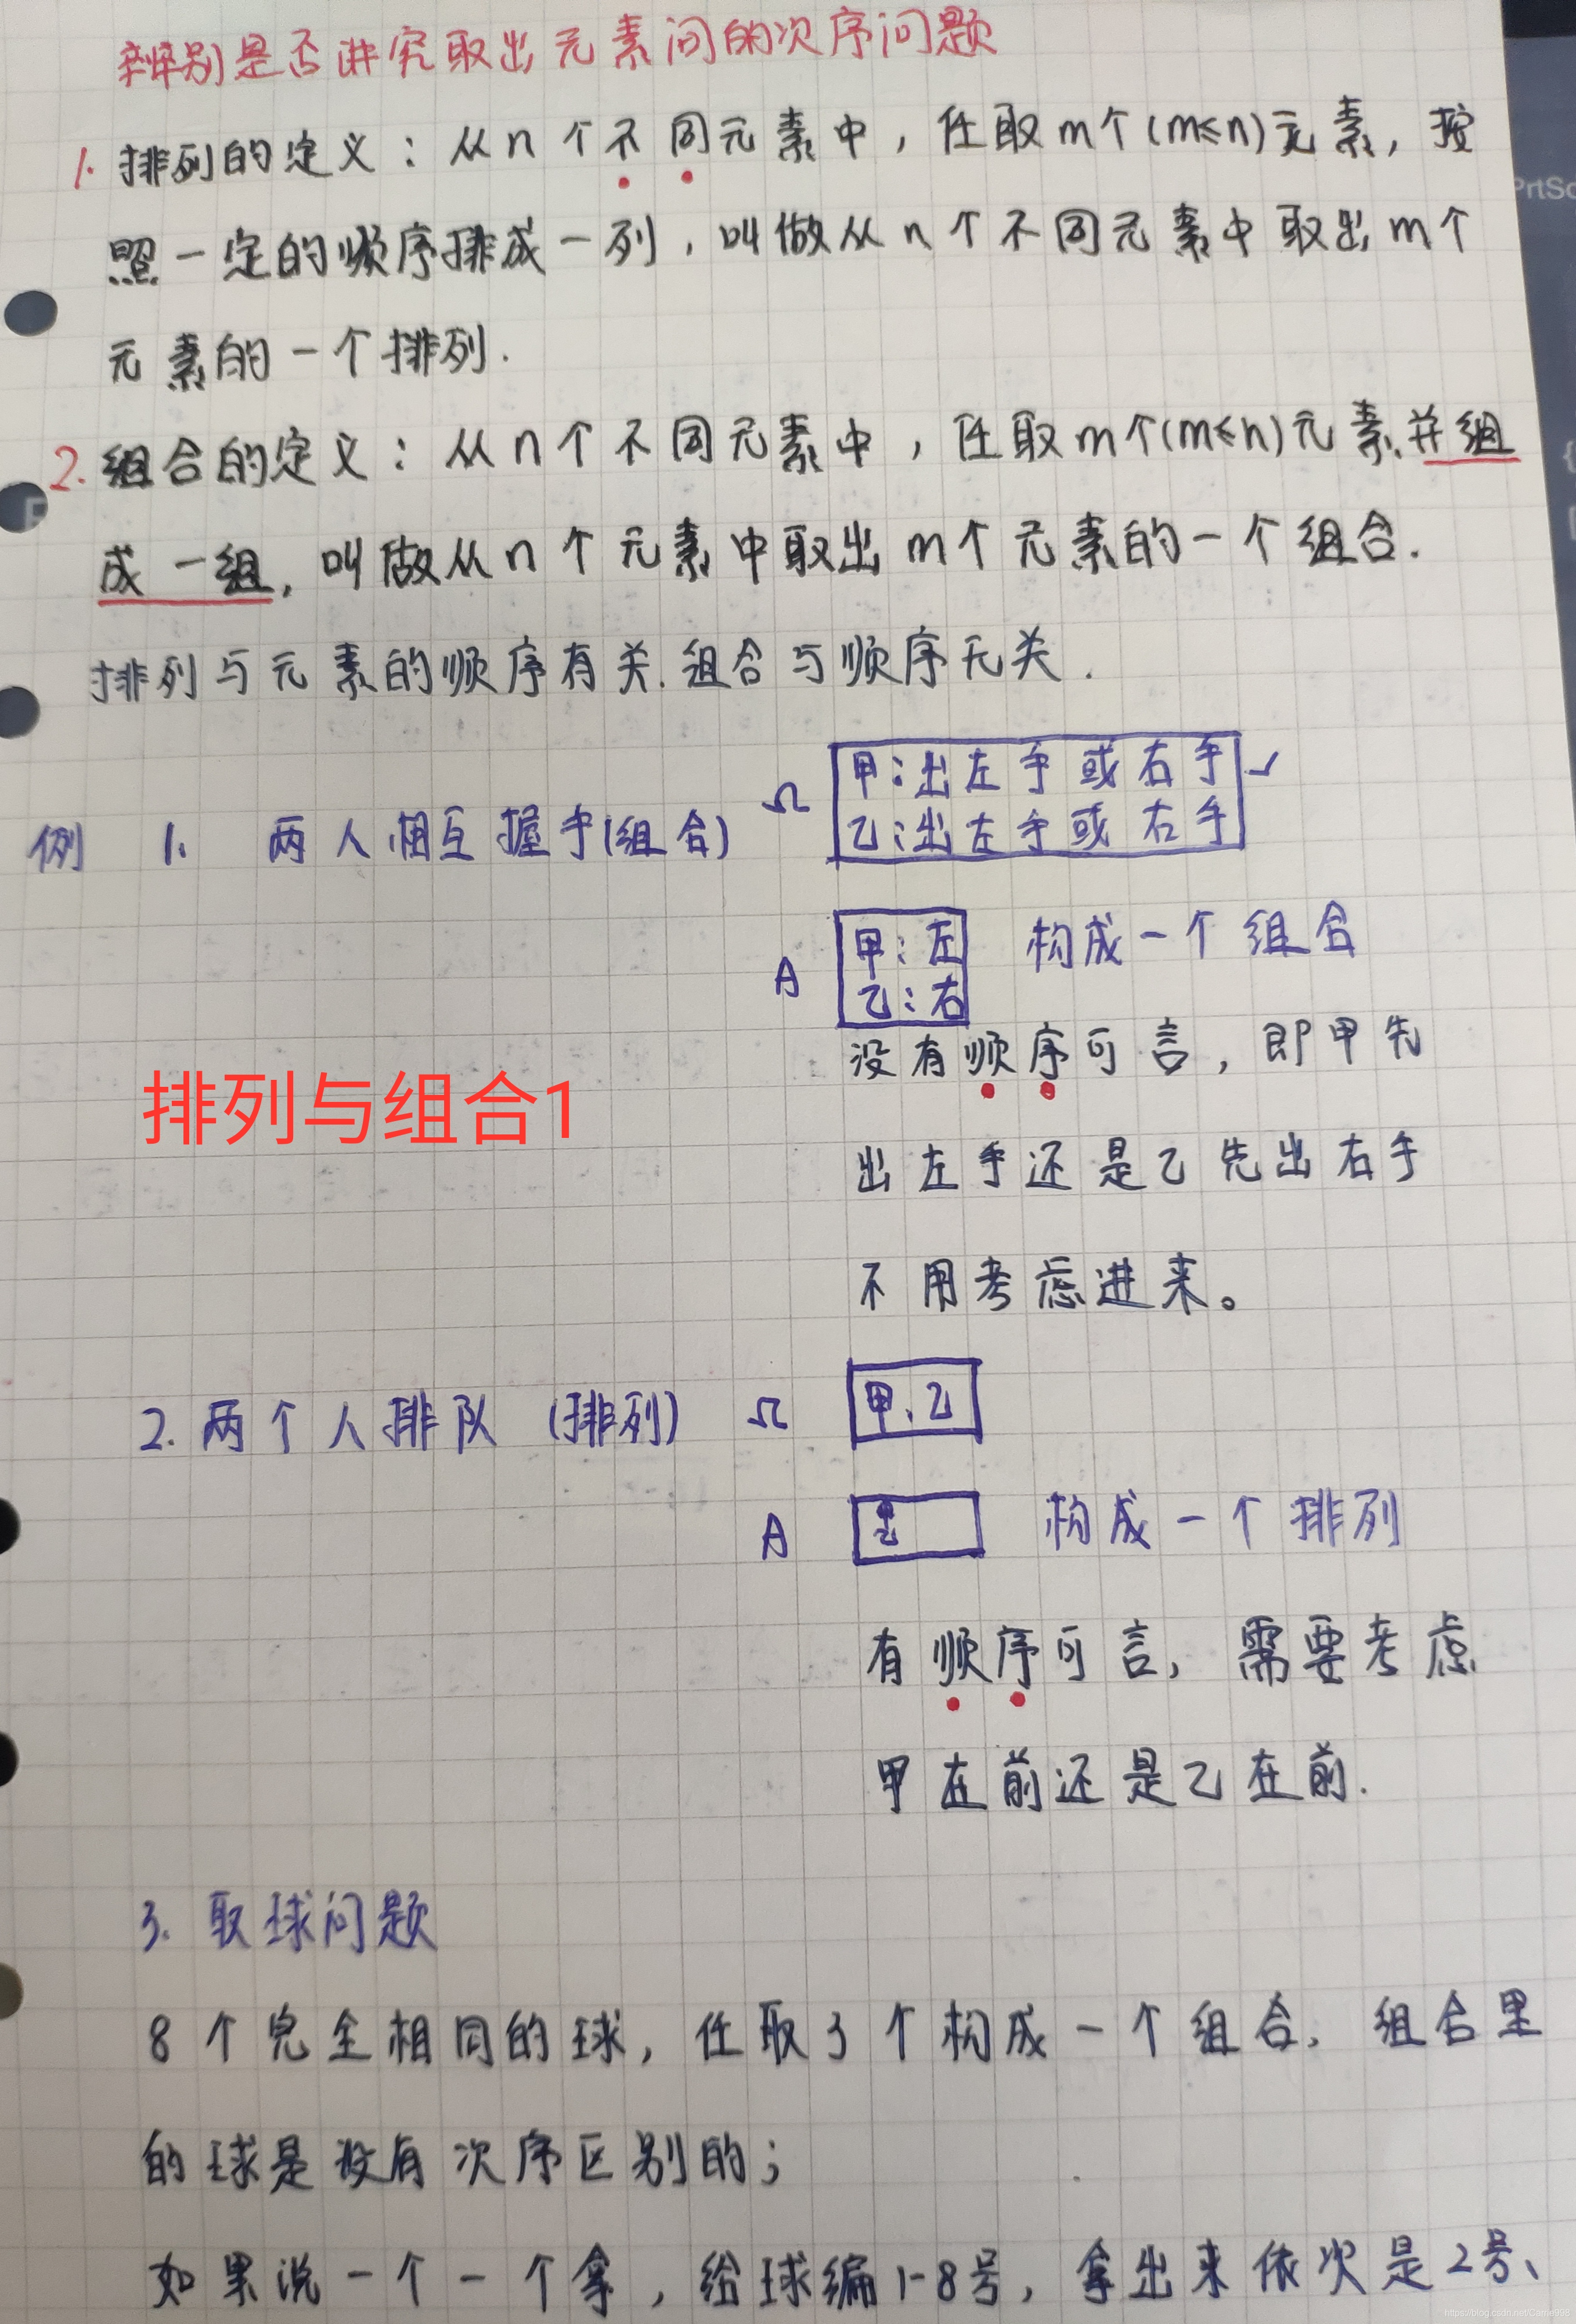 辨别是否讲究取出元素间的次序问题
1. 排列的定义：从n个不同元素中，任取m个(m≤n)元素，按
照一定的顺序排成一列，叫做从n个不同元素中取出m个
元素的一个排列.
2. 组合的定义：从n个不同元素中，任取m个(m≤n)元素并组
成一组，叫做从n个元素中取出m个元素的一个组合.
排列与元素的顺序有关.组合与顺序无关.
例 1. 两人相互握手(组合) Ω 甲:出左手或右手 ✓
乙:出左手或右手
A 甲:左 构成一个组合
乙:右
没有顺序可言，即甲先
排列与组合1
出左手还是乙先出右手
不用考虑进来。
2. 两个人排队 (排列) Ω 甲、乙
A 构成一个排列
有顺序可言，需要考虑
甲在前还是乙在前.
3. 取球问题
8个完全相同的球，任取3个构成一个组合，组合里
的球是没有次序区别的；
如果说一个一个拿，给球编1-8号，拿出来依次是2号、
PrtSc
https://blog.csdn.net/Carrie998